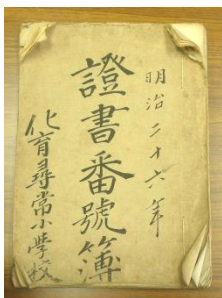 明治二十六年
證書番號簿
化育尋常小學校